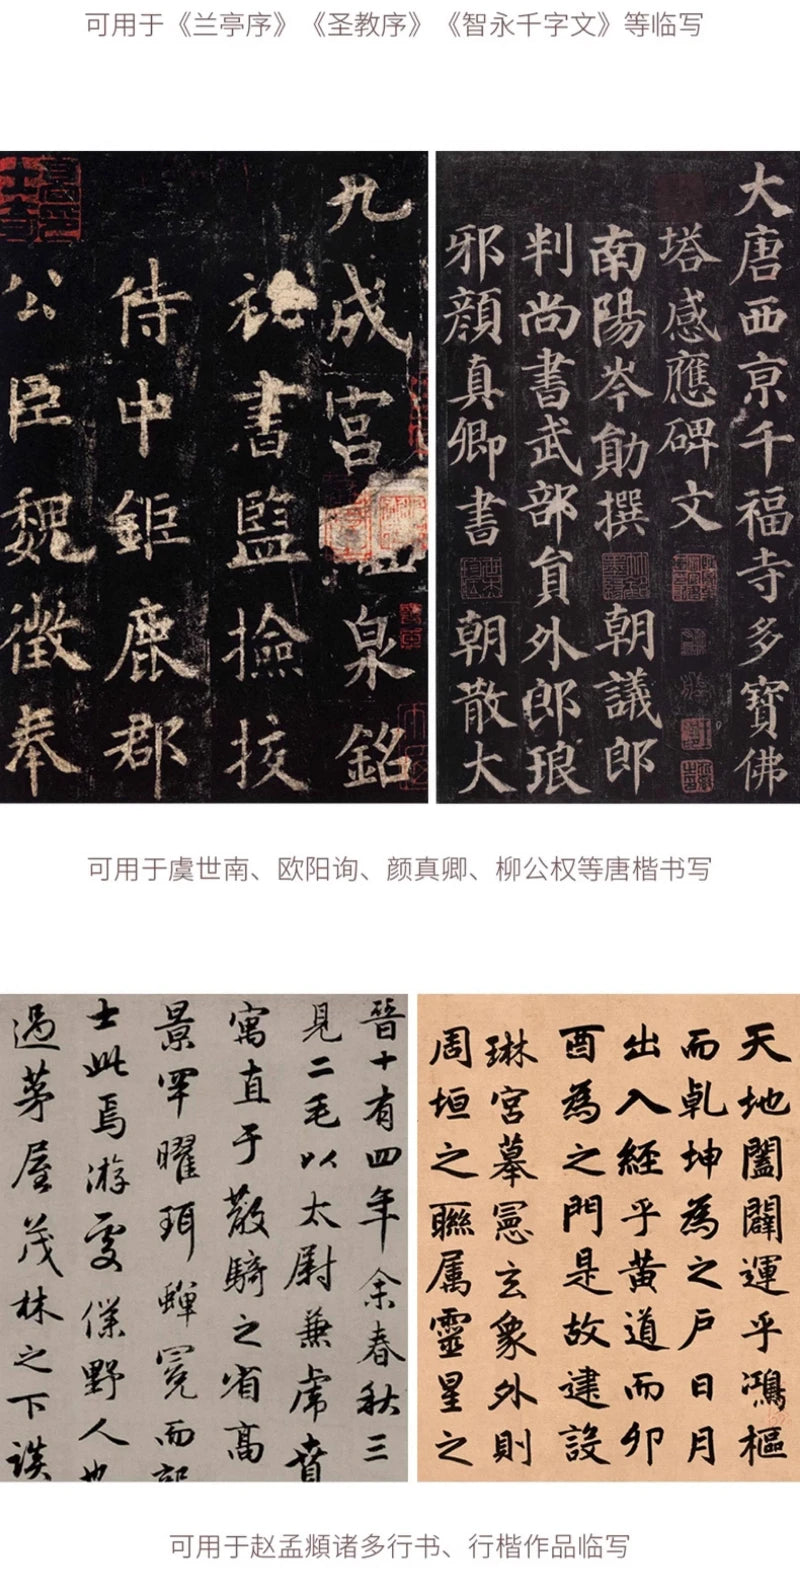 可用于《兰亭序》《圣教序》《智永千字文》等临写
九成宮泉銘
祕書監撿挍
侍中鉅鹿郡
公臣魏徵奉
大唐西京千福寺多寶佛
塔感應碑文
南陽岑勛撰 朝議郎
判尚書武部員外郎琅
邪顏真卿書 朝散大
可用于虞世南、欧阳询、颜真卿、柳公权等唐楷书写
晉十有四年余春秋三
見二毛以太尉兼虎賁
寓直于散騎之省高
景罕曜珥蟬冕而
士此焉游處僕野人也
過茅屋茂林之下談
天地闔闢運乎鴻樞
而乾坤為之戶日月
出入經乎黃道而卯
酉為之門是故建設
琳宮摹憲玄象外則
周垣之聯屬靈星之
可用于赵孟頫诸多行书、行楷作品临写